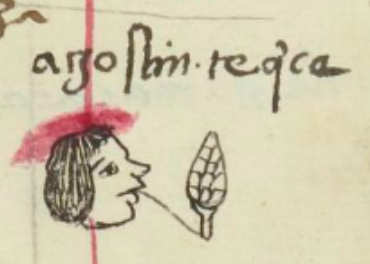 agostin . teq̃ca